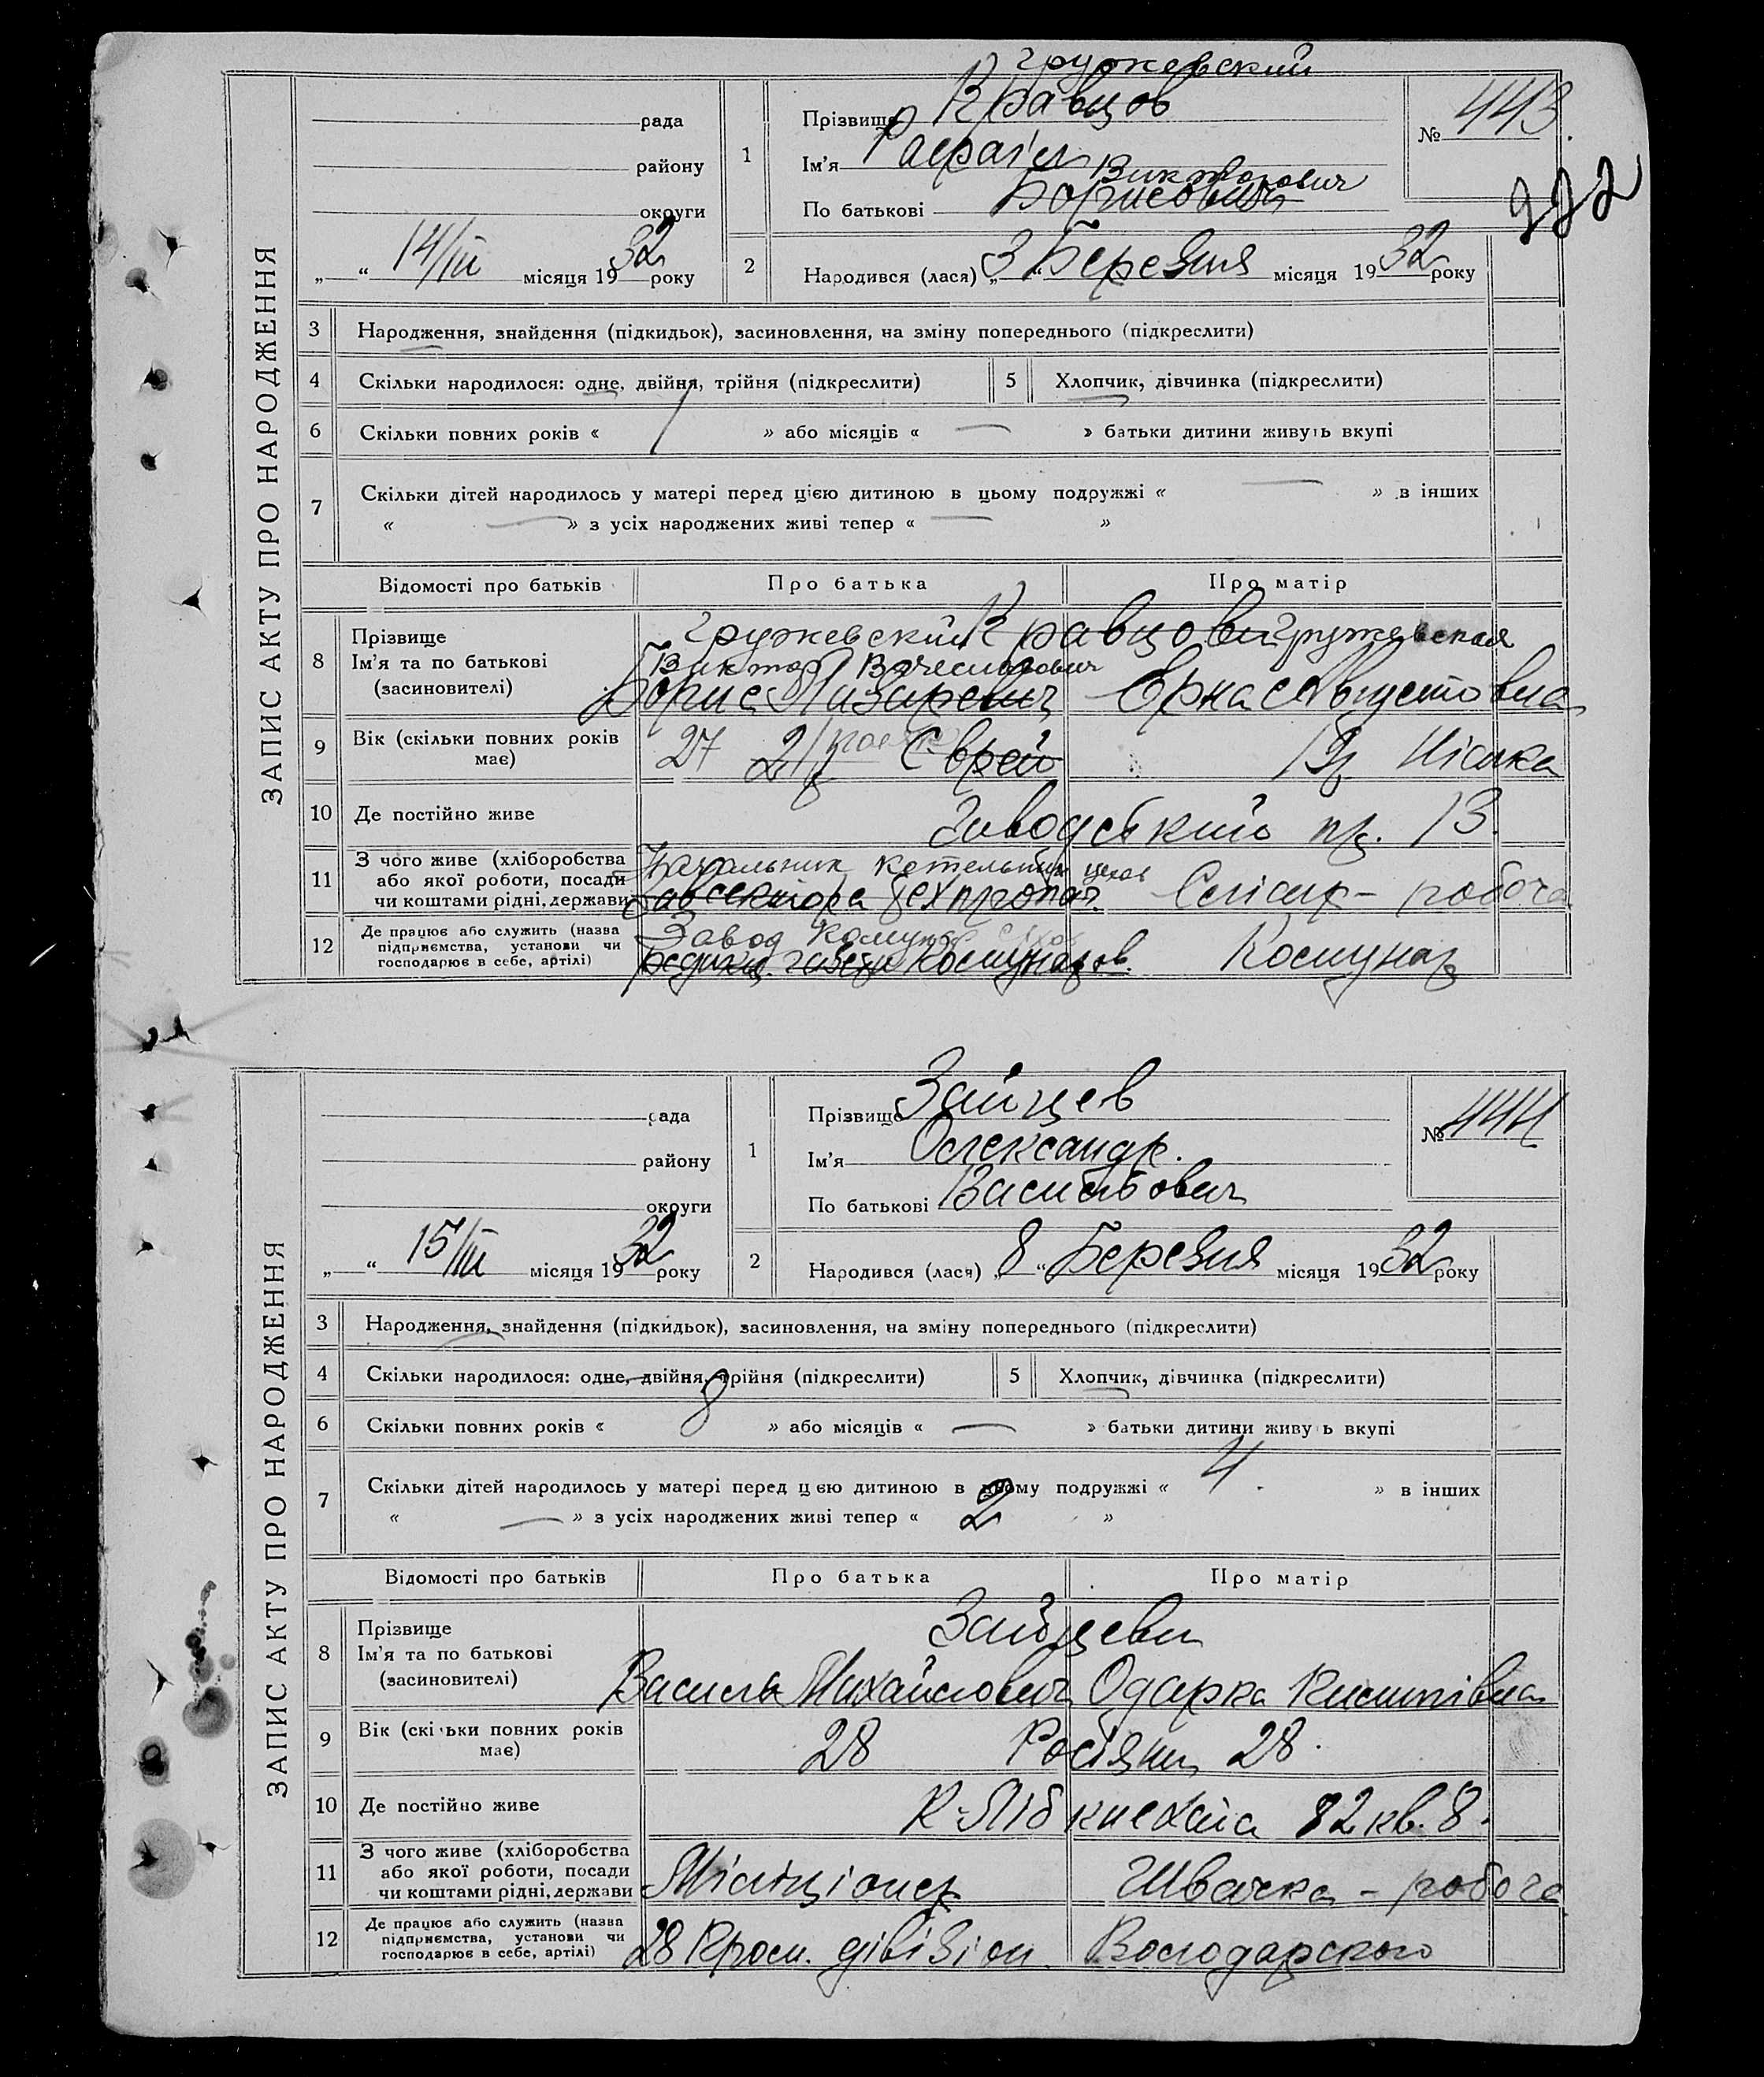 ЗАПИС АКТУ ПРО НАРОДЖЕННЯ
рада
району
округи
„ “ 14/III місяця 1932 року
1
Гружевский
Прізвище Кравцов
Ім'я Рафаїл
Викторович
По батькові Борисович
№ 443.
222
2 Народився (лася) „3“ Березня місяця 1932 року
3 Народження, знайдення (підкидьок), засиновлення, на зміну попереднього (підкреслити)
4 Скільки народилося: одне, двійня, трійня (підкреслити) 5 Хлопчик, дівчинка (підкреслити)
6 Скільки повних років « 1 » або місяців « — » батьки дитини живуть вкупі
7 Скільки дітей народилось у матері перед цією дитиною в цьому подружжі « — » в інших
« — » з усіх народжених живі тепер « — »
Відомості про батьків Про батька Про матір
8 Прізвище
Ім'я та по батькові
(засиновителі)
Гружевский Кравцови Гружевская
Виктор Вячеславович
Борис Лазаревич Ерна Августовна
9 Вік (скільки повних років має) 27 21 Єврей 19 Німка
10 Де постійно живе Заводський пр. 13.
11 З чого живе (хліборобства
або якої роботи, посади
чи коштами рідні, держави
Начальник котельных цехов
Завсектора техпропаг. Слісар – робоча
12 Де працює або служить (назва
підприємства, установи чи
господарює в себе, артілі)
Завод Комунар
редакц. газети Комунаров. Комунар
ЗАПИС АКТУ ПРО НАРОДЖЕННЯ
рада
району
округи
„ “ 15/III місяця 1932 року
1
Прізвище Зайцев
Ім'я Олександр.
По батькові Васильович
№ 444
2 Народився (лася) „8“ Березня місяця 1932 року
3 Народження, знайдення (підкидьок), засиновлення, на зміну попереднього (підкреслити)
4 Скільки народилося: одне, двійня, трійня (підкреслити) 5 Хлопчик, дівчинка (підкреслити)
6 Скільки повних років « 8 » або місяців « — » батьки дитини живуть вкупі
7 Скільки дітей народилось у матері перед цією дитиною в цьому подружжі « 4. » в інших
« — » з усіх народжених живі тепер « 2 »
Відомості про батьків Про батька Про матір
8 Прізвище
Ім'я та по батькові
(засиновителі)
Зайцеви
Василь Михайлович Одарка Килипівна
9 Вік (скільки повних років має) 28 Росіяни 28.
10 Де постійно живе К-Лібкнехта 82 кв. 8.
11 З чого живе (хліборобства
або якої роботи, посади
чи коштами рідні, держави
Міліціонер Швачка – робоча
12 Де працює або служить (назва
підприємства, установи чи
господарює в себе, артілі)
28 Кром. дівізіон. Володарского